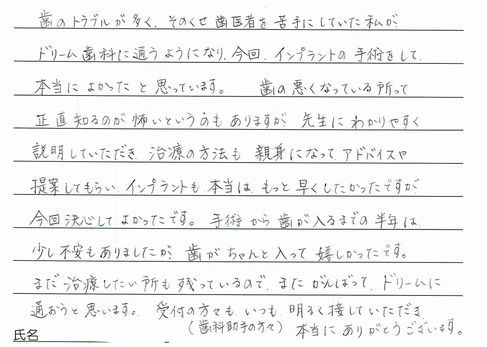 歯のトラブルが多く、そのくせ歯医者を苦手にしていた私が、
ドリーム歯科に通うようになり、今回、インプラントの手術をして、
本当によかったと思っています。　歯の悪くなっている所って
正直知るのが怖いというのもありますが、先生にわかりやすく
説明していただき、治療の方法も親身になってアドバイスや
提案してもらい、インプラントも、本当は、もっと早くしたかったですが
今回決心してよかったです。手術から歯が入るまでの半年は
少し不安もありましたが、歯がちゃんと入って嬉しかったです。
まだ治療したい所も残っているので、またがんばって、ドリームに
通おうと思います。受付の方々も、いつも、明るく接していただき、
(歯科助手の方々)　本当にありがとうございます。
氏名